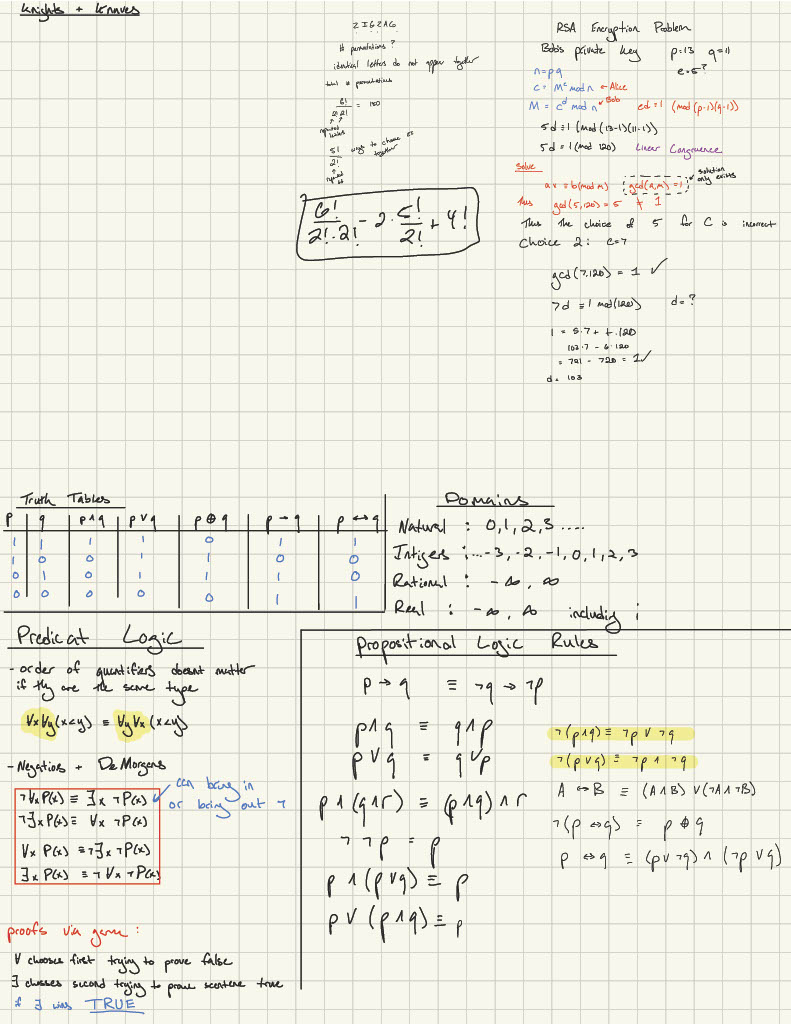 Knights + Knaves
ZIGZAG
# permutations ?
identical letters do not appear together
total # permutations
6!
2!2! = 180
repeated
letters
5! ways to choose
2! together
repeated
6!/2!·2! - 2·5!/2! + 4!
RSA Encryption Problem
Bob's private key p=13 q=11
n=pq e=5?
C = Mᵉ mod n ← Alice
M = Cᵈ mod n ← Bob ed ≡ 1 (mod (p-1)(q-1))
5d ≡ 1 (mod (13-1)(11-1))
5d ≡ 1 (mod 120) Linear Congruence
Solve
solution
only exists
ax ≡ b(mod m) gcd(a,m) = 1
Thus gcd(5,120) = 5 ≠ 1
Thus the choice of 5 for C is incorrect
Choice 2: C=7
gcd(7,120) = 1 ✓
7d ≡ 1 mod(120) d=?
1 = s·7 + t·120
103·7 - 6·120
= 721 - 720 = 1 ✓
d = 103
Truth Tables
p q p∧q p∨q p⊕q p→q p↔q
1 1 1 1 0 1 1
1 0 0 1 1 0 0
0 1 0 1 1 1 0
0 0 0 0 0 1 1
Domains
Natural : 0,1,2,3 ....
Intigers : ...-3,-2,-1,0,1,2,3
Rational : -∞, ∞
Real : -∞, ∞ including i
Predicat Logic
- order of quantifiers doesnt matter
if thy are the same type
∀x∀y(x<y) ≡ ∀y∀x(x<y)
- Negations + DeMorgans
¬∀xP(x) ≡ ∃x ¬P(x)
¬∃xP(x) ≡ ∀x ¬P(x)
∀x P(x) ≡ ¬∃x ¬P(x)
∃x P(x) ≡ ¬∀x ¬P(x)
can bring in
or bring out ¬
proofs via game :
∀ chooses first trying to prove false
∃ chooses second trying to prove scentene true
if ∃ wins TRUE
Propositional Logic Rules
p → q ≡ ¬q → ¬p
p∧q ≡ q∧p
p∨q ≡ q∨p
p∧(q∧r) ≡ (p∧q)∧r
¬¬p = p
p∧(p∨q) ≡ p
p∨(p∧q) ≡ p
¬(p∧q) ≡ ¬p∨¬q
¬(p∨q) ≡ ¬p∧¬q
A ↔ B ≡ (A∧B)∨(¬A∧¬B)
¬(p↔q) ≡ p⊕q
p ↔ q ≡ (p∨¬q)∧(¬p∨q)